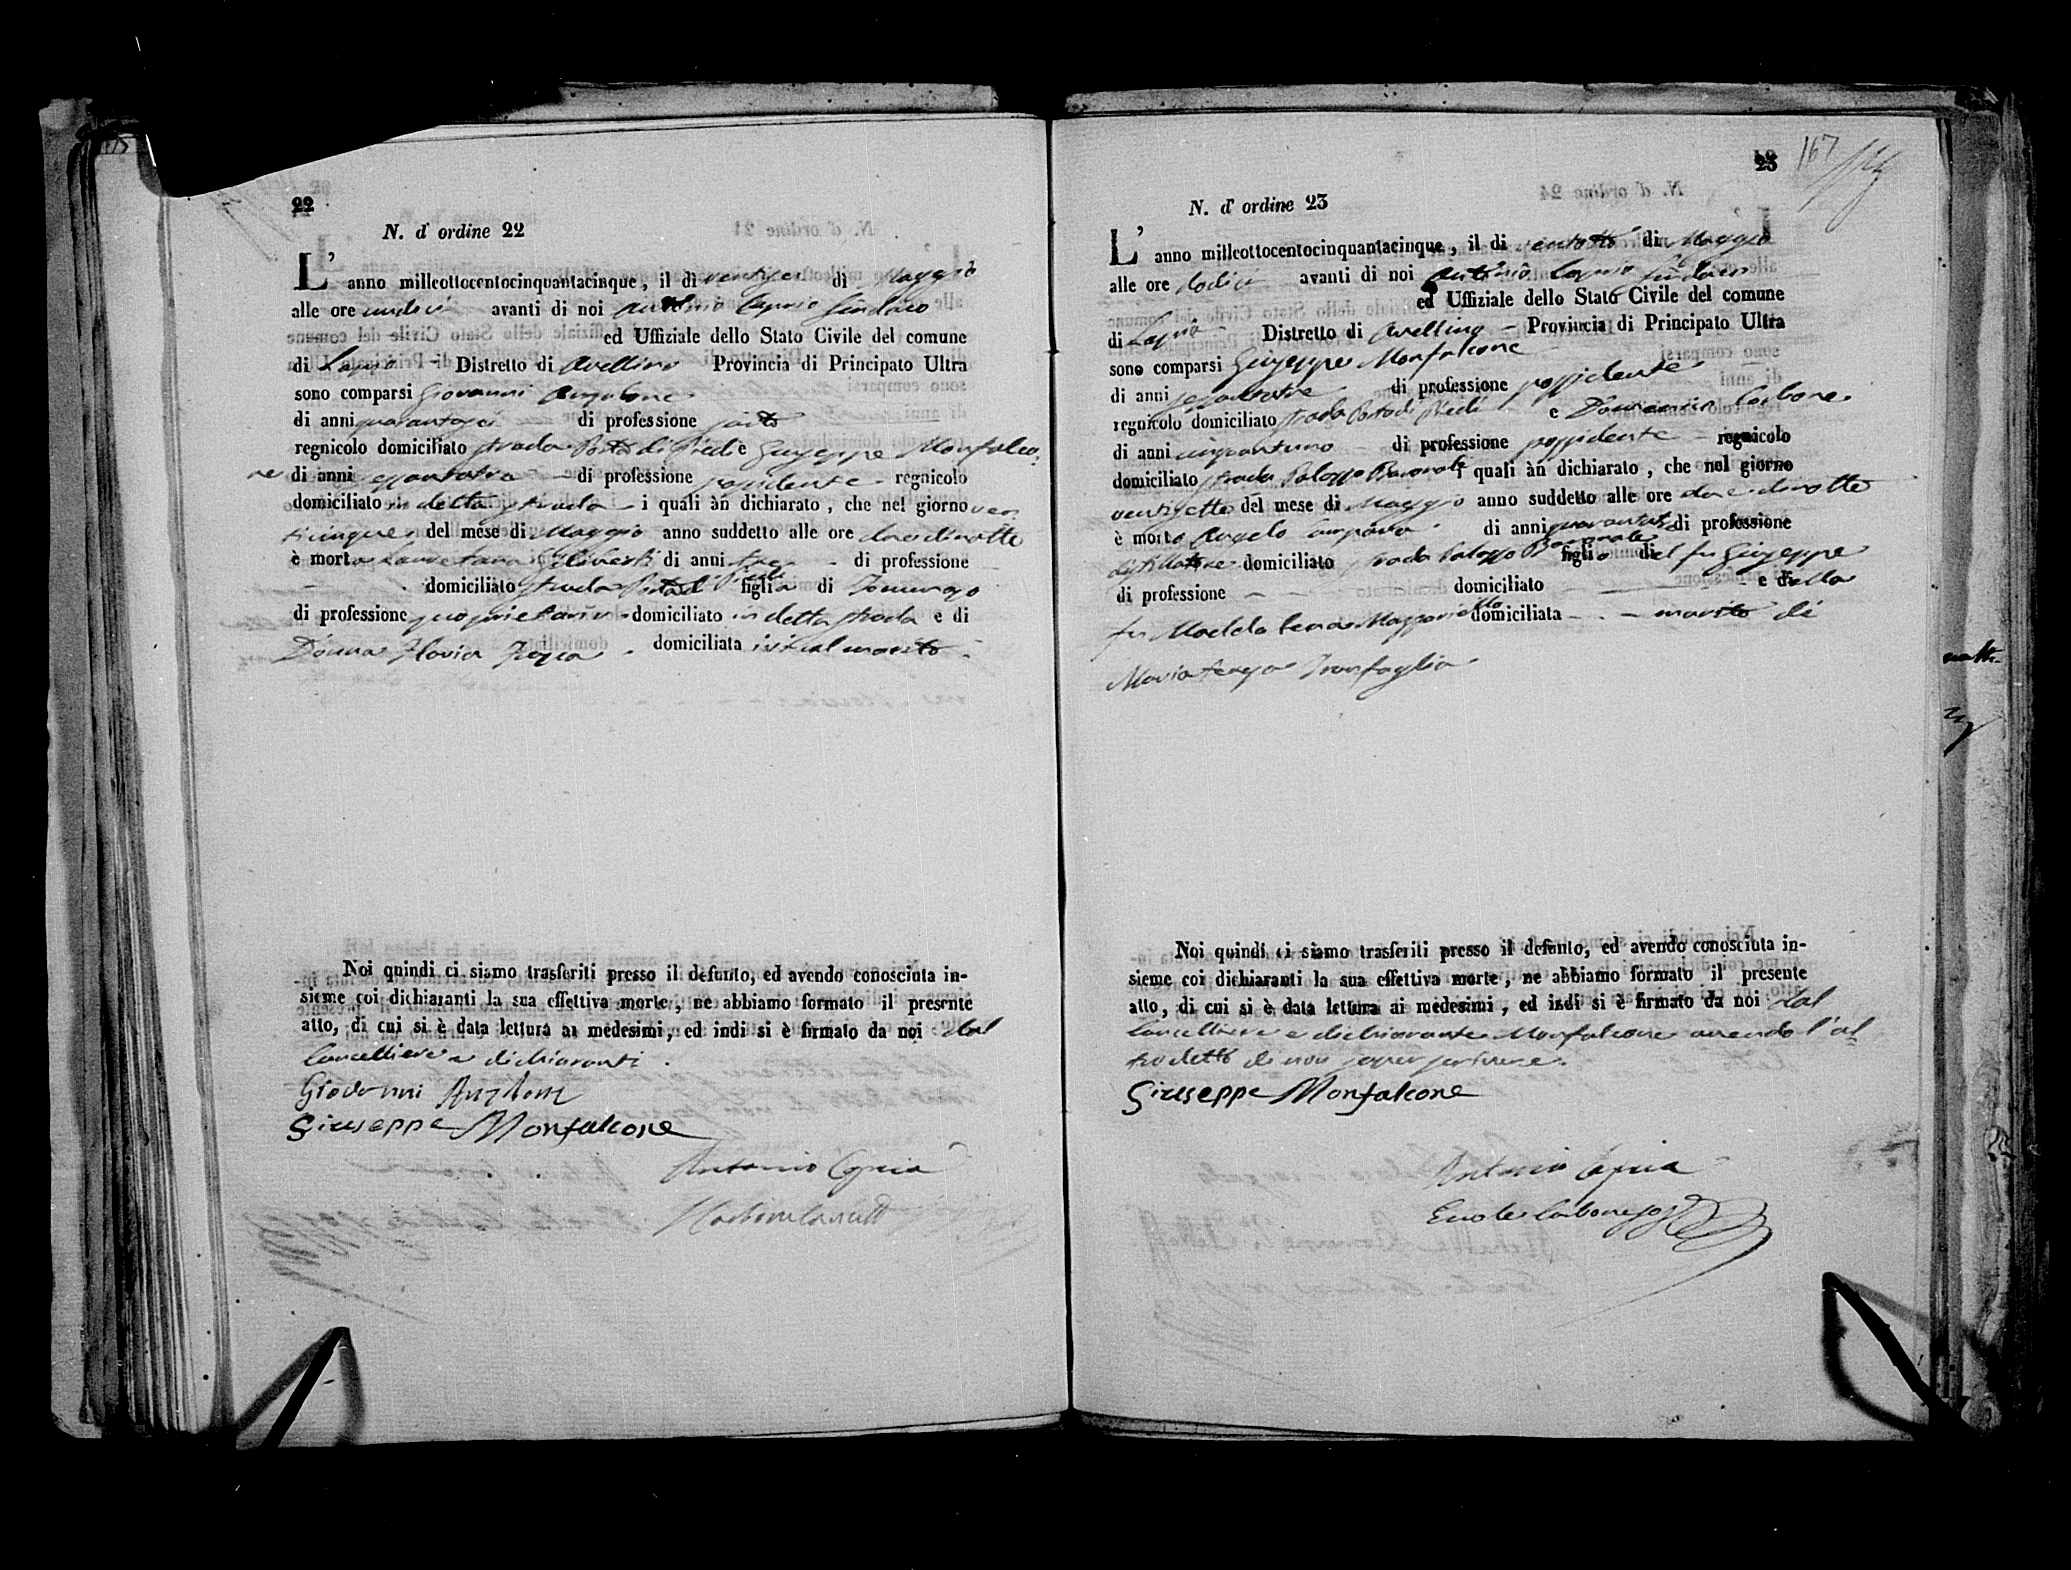 22
N. d' ordine 22
L' anno milleottocentocinquantacinque, il di ventisei di Maggio
alle ore undici avanti di noi Antonio Capria Sindaco
ed Uffiziale dello Stato Civile del comune
di Lapio Distretto di Avellino Provincia di Principato Ultra
sono comparsi Giovanni Anzalone
di anni quarantasei di professione sarto
regnicolo domiciliato strada Porta di Piedi e Giuseppe Monfalco=
ne di anni sessantatre di professione possidente regnicolo
domiciliato in detta strada i quali àn dichiarato, che nel giorno ven
ticinque del mese di Maggio anno suddetto alle ore due di notte
è morta Lauretana di anni tre di professione
domiciliato strada Porta di Piedi figlia di Domenico
di professione proprietario domiciliato in detta strada e di
Donna Flavia domiciliata ivi col marito
Noi quindi ci siamo trasferiti presso il defunto, ed avendo conosciuta in-
sieme coi dichiaranti la sua effettiva morte, ne abbiamo formato il presente
atto, di cui si è data lettura ai medesimi, ed indi si è firmato da noi dal
Cancelliere e dichiaranti.
Giovanni Anzalone
Giuseppe Monfalcone
Antonio Capria
23
167
N. d' ordine 23
L' anno milleottocentocinquantacinque, il di ventotto di Maggio
alle ore dodici avanti di noi Antonio Capria Sindaco
ed Uffiziale dello Stato Civile del comune
di Lapio Distretto di Avellino Provincia di Principato Ultra
sono comparsi Giuseppe Monfalcone
di anni sessantatre di professione possidente
regnicolo domiciliato strada Porta di Piedi e Domenico Carbone
di anni cinquantuno di professione possidente regnicolo
domiciliato strada Palazzo Baronale i quali àn dichiarato, che nel giorno
ventisette del mese di Maggio anno suddetto alle ore due di notte
è morto Angelo di anni di professione
distillatore domiciliato strada Palazzo Baronale figlio di del fu Giuseppe
di professione domiciliato e della
fu Maddalena Mazzariello domiciliata marito di
Maria Teresa Tranfaglia
Noi quindi ci siamo trasferiti presso il defunto, ed avendo conosciuta in-
sieme coi dichiaranti la sua effettiva morte, ne abbiamo formato il presente
atto, di cui si è data lettura ai medesimi, ed indi si è firmato da noi dal
Cancelliere e dichiarante Monfalcone avendo l'al=
tro detto di non saper scrivere.
Giuseppe Monfalcone
Antonio Capria